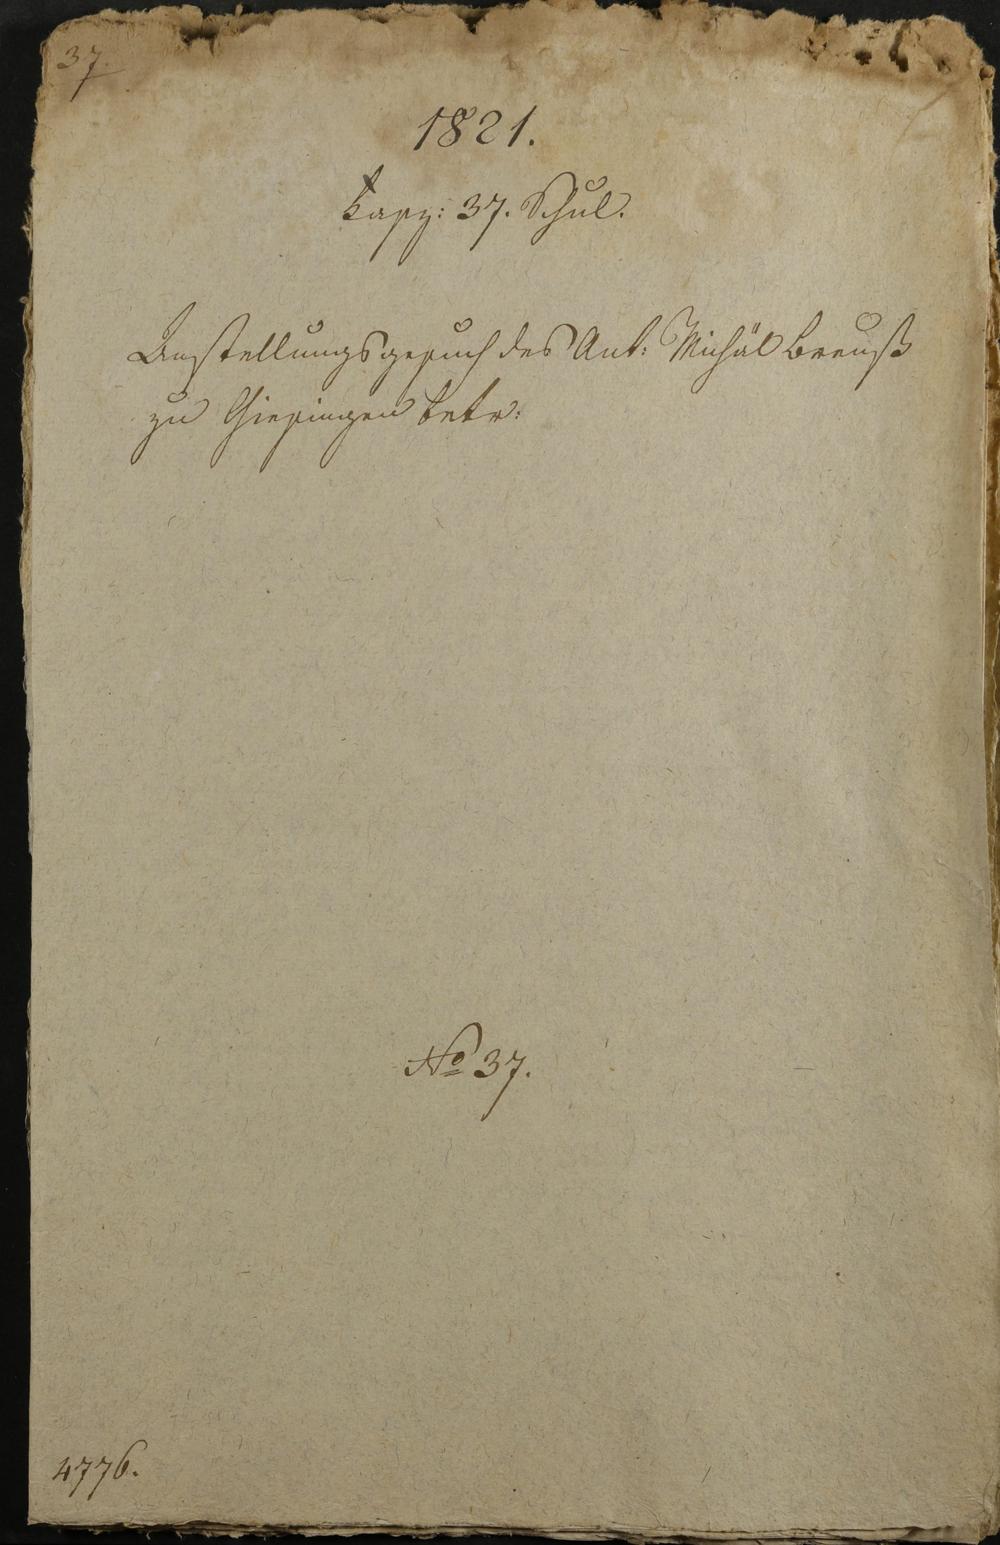 37.
1821.
37. Schul.
Anstellungsgesuch des Ant: Michäl Breuß
zu Gisingen betr:
No 37.
4776.